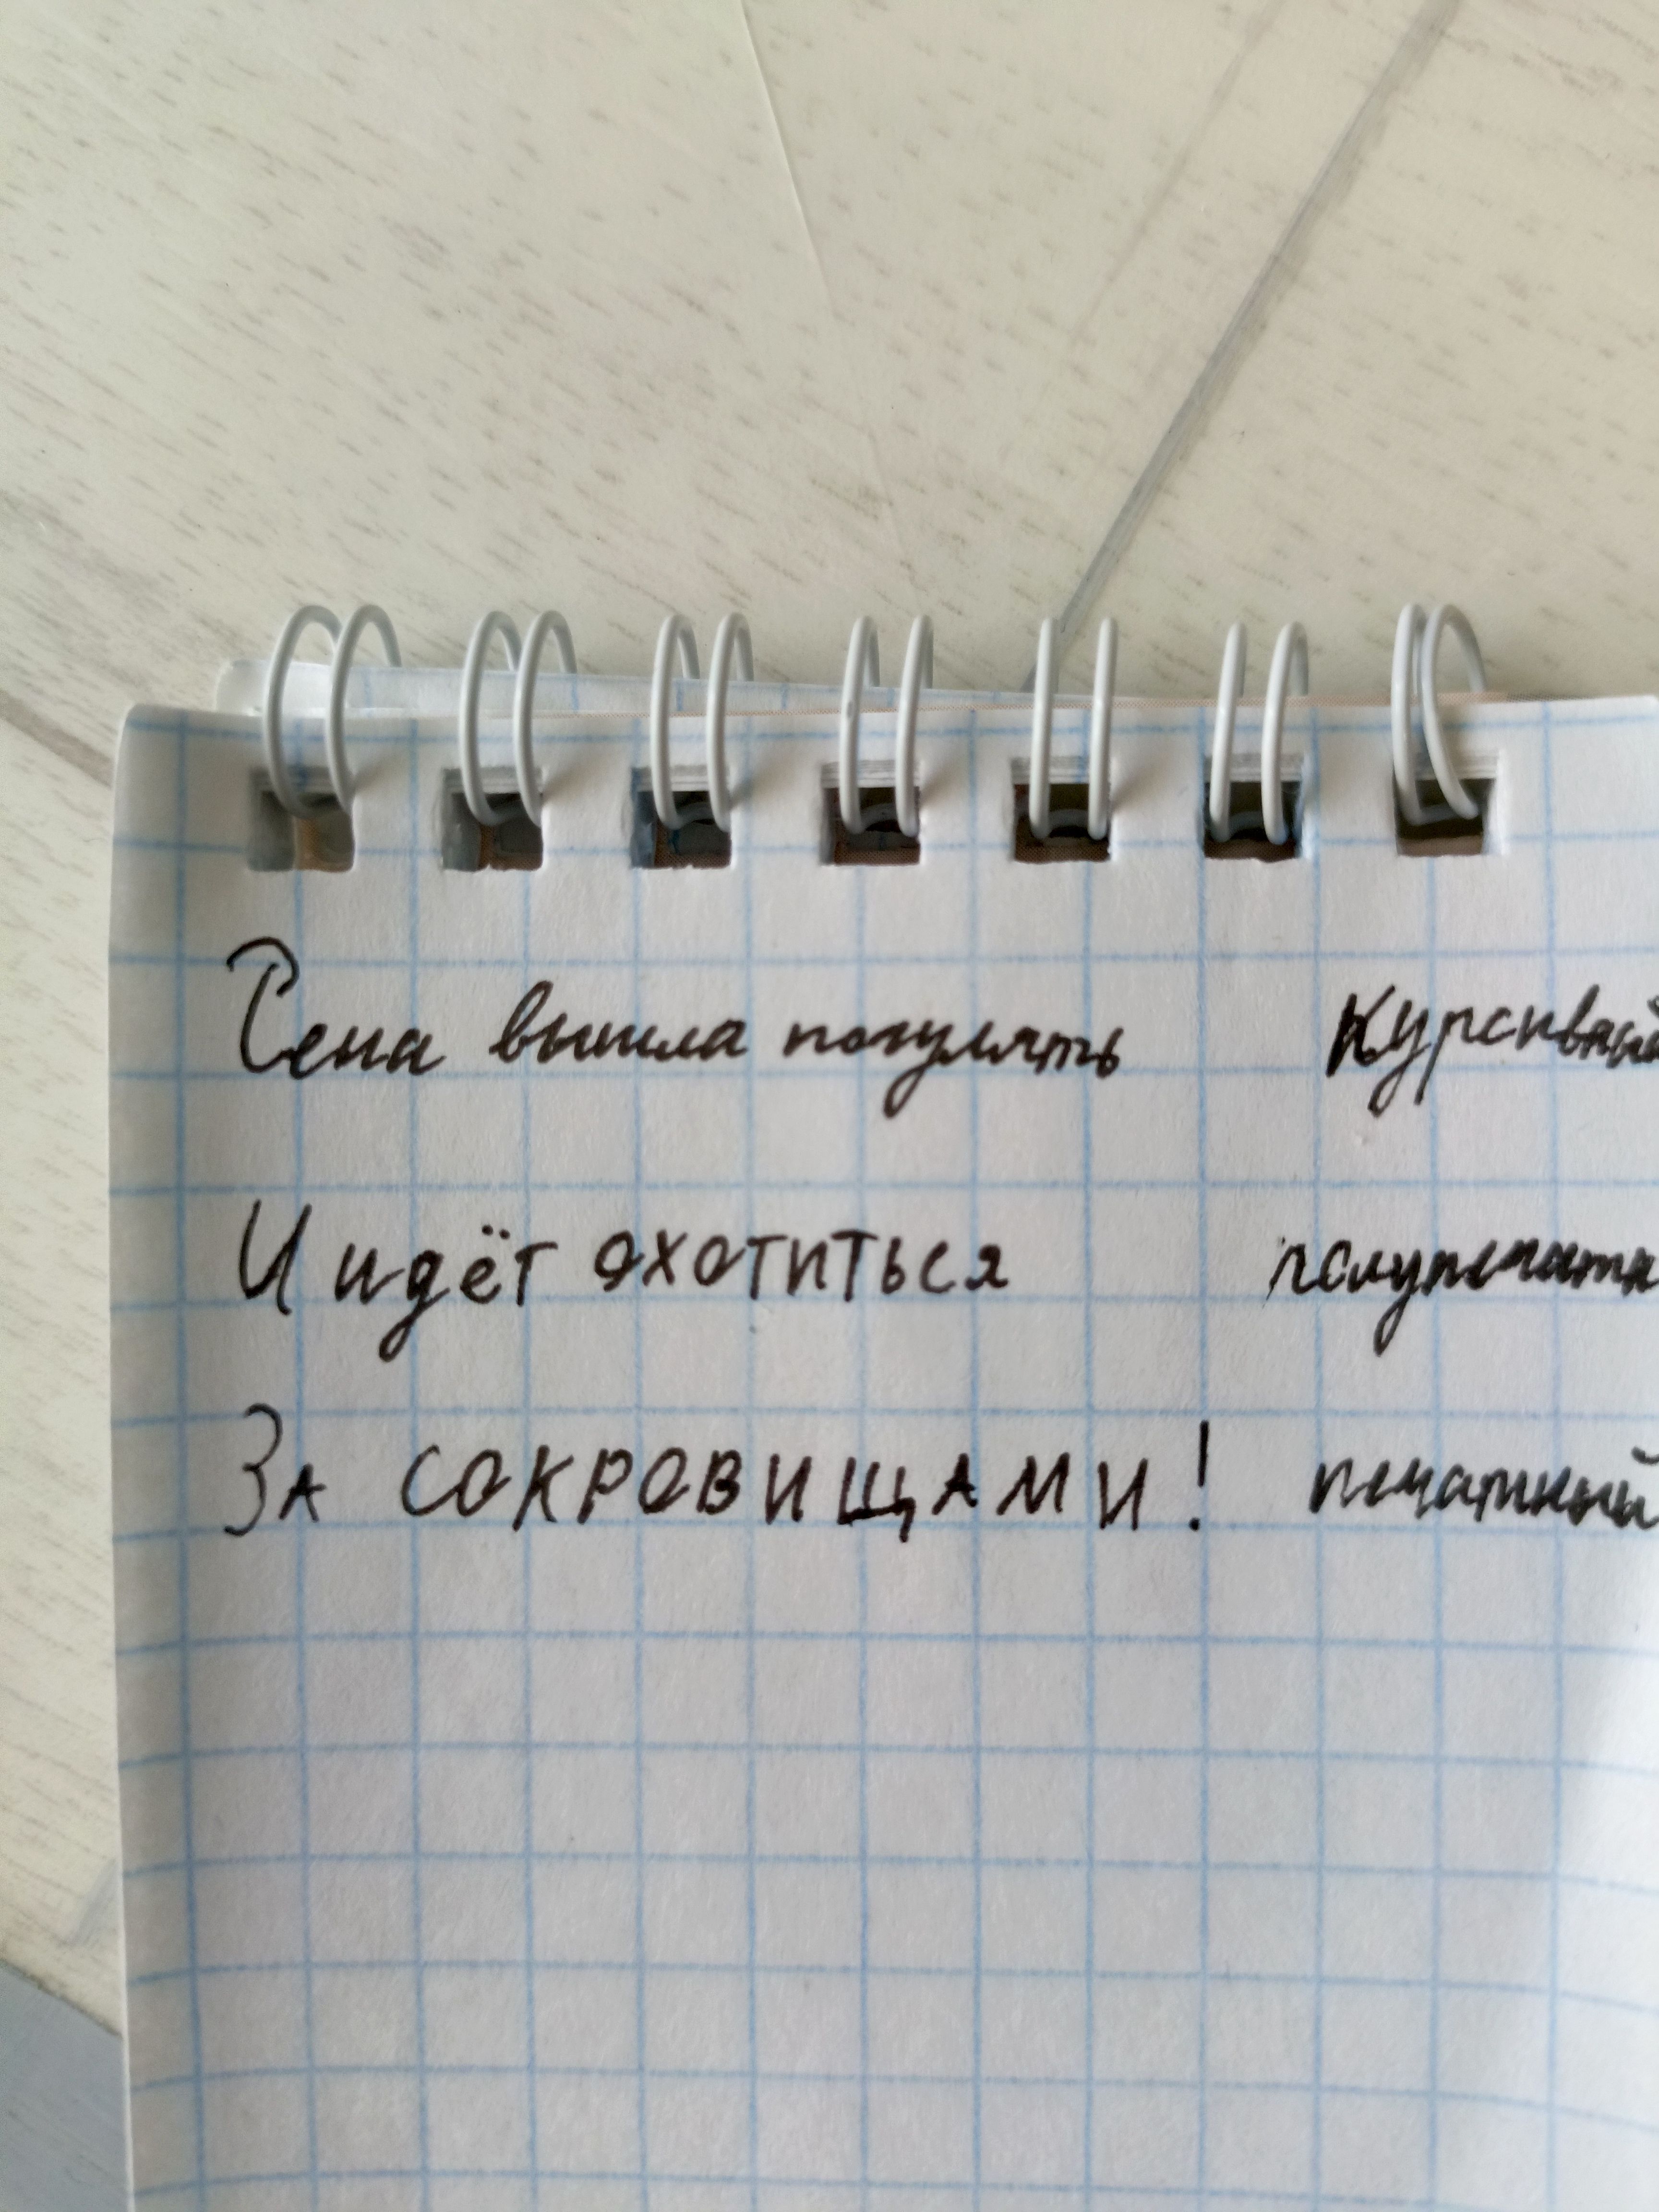 Сена вышла погулять курсивный
И идёт охотиться полупечатн
За сокровищами! печатный